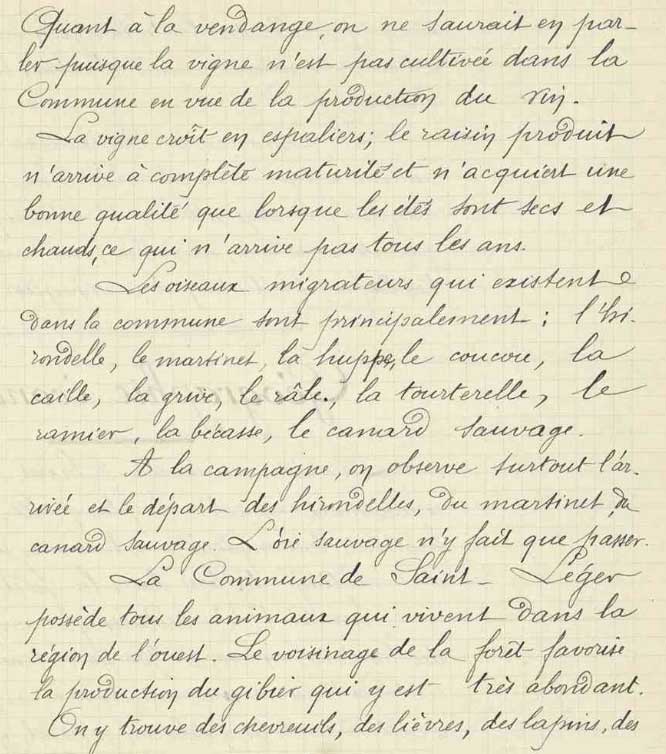 Quant à la vendange, on ne saurait en par-
ler puisque la vigne n'est pas cultivée dans la
Commune en vue de la production du vin.
La vigne croît en espaliers; le raisin produit
n'arrive à complète maturité et n'acquiert une
bonne qualité que lorsque les étés sont secs et
chauds, ce qui n'arrive pas tous les ans.
Les oiseaux migrateurs qui existent
dans la commune sont principalement : l'hi-
rondelle, le martinet, la huppe, le coucou, la
caille, la grive, le râle, la tourterelle, le
ramier, la bécasse, le canard sauvage.
A la campagne, on observe surtout l'ar-
rivée et le départ des hirondelles, du martinet, du
canard sauvage. L'oie sauvage n'y fait que passer.
La Commune de Saint-Léger
possède tous les animaux qui vivent dans la
région de l'ouest. Le voisinage de la forêt favorise
la production du gibier qui y est très abondant.
On y trouve des chevreuils, des lièvres, des lapins, des